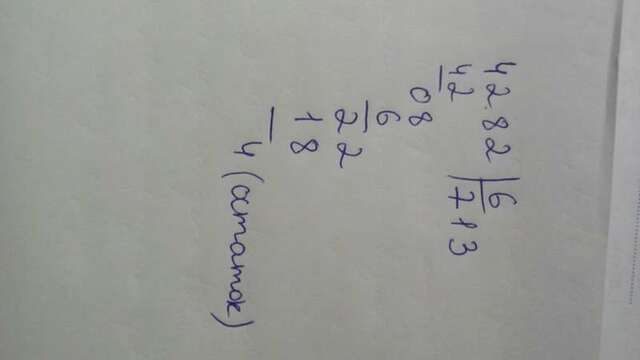 4282 | 6
42 713
08
6
22
18
4 (остаток)